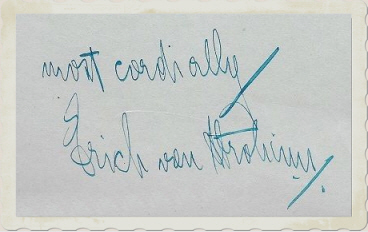 most cordially
Erich von Stroheim